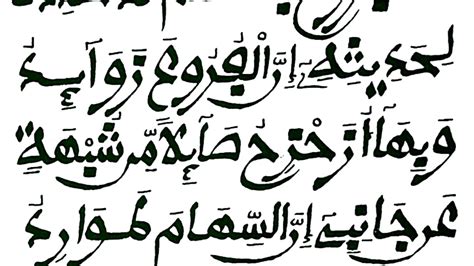 لِحَدِيثِهِ إِنَّ الْفُرُوعَ زَوَآئِدُ
وَبِهَا أُزَحْزِحُ صَآئِلًا مِّن شُبْهَةٍ
عَن جَانِبِي إِنَّ السِّهَامَ لَمَوَارِدُ